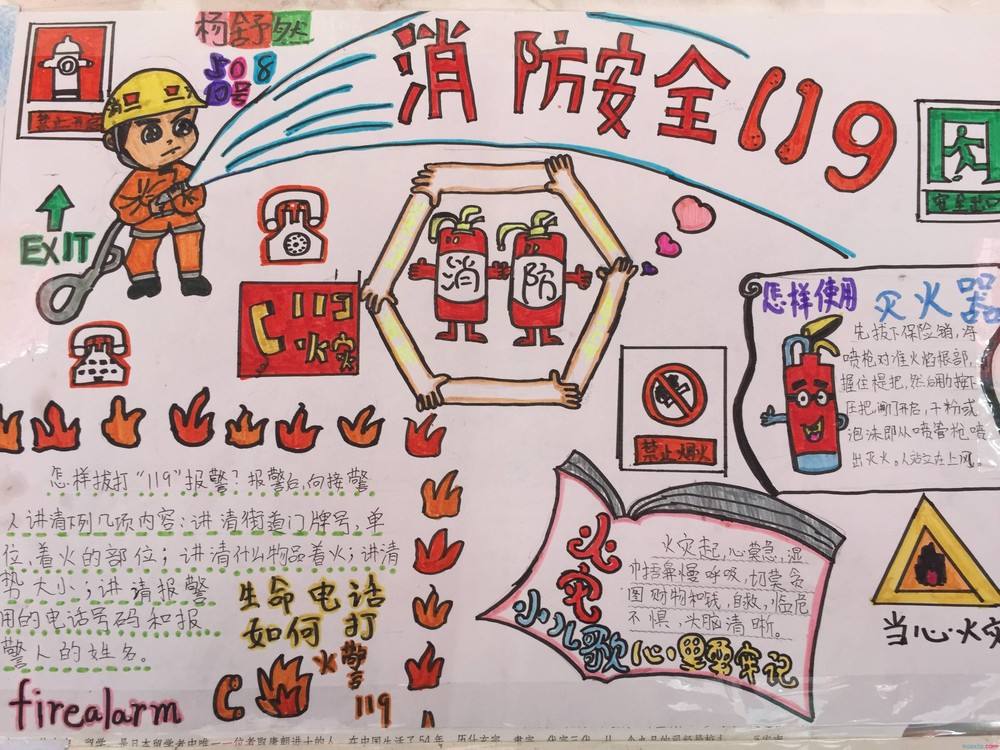 杨舒然
508
10号
消防安全119
EXIT
119
火灾
消
防
安全出口
怎样使用
灭火器
先拔下保险销,将
喷枪对准火焰根部,
握住提把,然后用力按下
压把,阀门开启,干粉或
泡沫即从喷管枪喷
出灭火。人站立在上风
禁止烟火
怎样拔打“119”报警?报警后,向接警
人讲清下列几项内容:讲清街道门牌号,单
位,着火的部位;讲清什么物品着火;讲清
势大小;讲请报警
用的电话号码和报
警人的姓名。
生命电话
如何打
火警
119
firealarm
火灾
小儿歌
火灾起,心莫急,湿
巾捂鼻慢呼吸,切莫贪
图财物和钱,自救,临危
不惧,头脑清晰。
心里要牢记
当心火灾